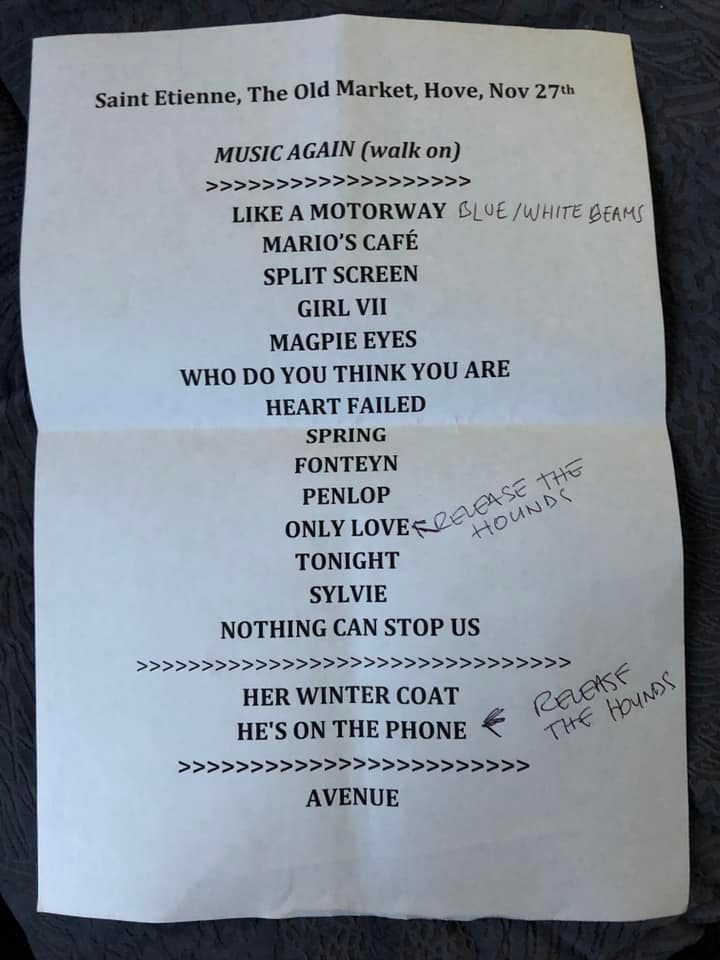 Saint Etienne, The Old Market, Hove, Nov 27th
MUSIC AGAIN (walk on)
>>>>>>>>>>>>>>>>>>>
LIKE A MOTORWAY BLUE/WHITE BEAMS
MARIO'S CAFÉ
SPLIT SCREEN
GIRL VII
MAGPIE EYES
WHO DO YOU THINK YOU ARE
HEART FAILED
SPRING
FONTEYN
PENLOP
ONLY LOVE RELEASE THE
HOUNDS
TONIGHT
SYLVIE
NOTHING CAN STOP US
>>>>>>>>>>>>>>>>>>>>>>>>>>>>>>>>>
HER WINTER COAT RELEASE
HE'S ON THE PHONE THE HOUNDS
>>>>>>>>>>>>>>>>>>>>>>>>
AVENUE